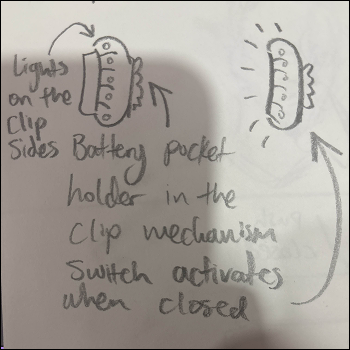 Lights
on the
Clip
Sides
Battery pocket
holder in the
Clip mechanism
Switch activates
when closed